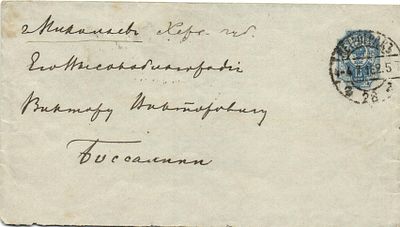 г Николаевъ Херс. губ.
Его Высокоблагородію
Виктору Викторовичу
Биссалини